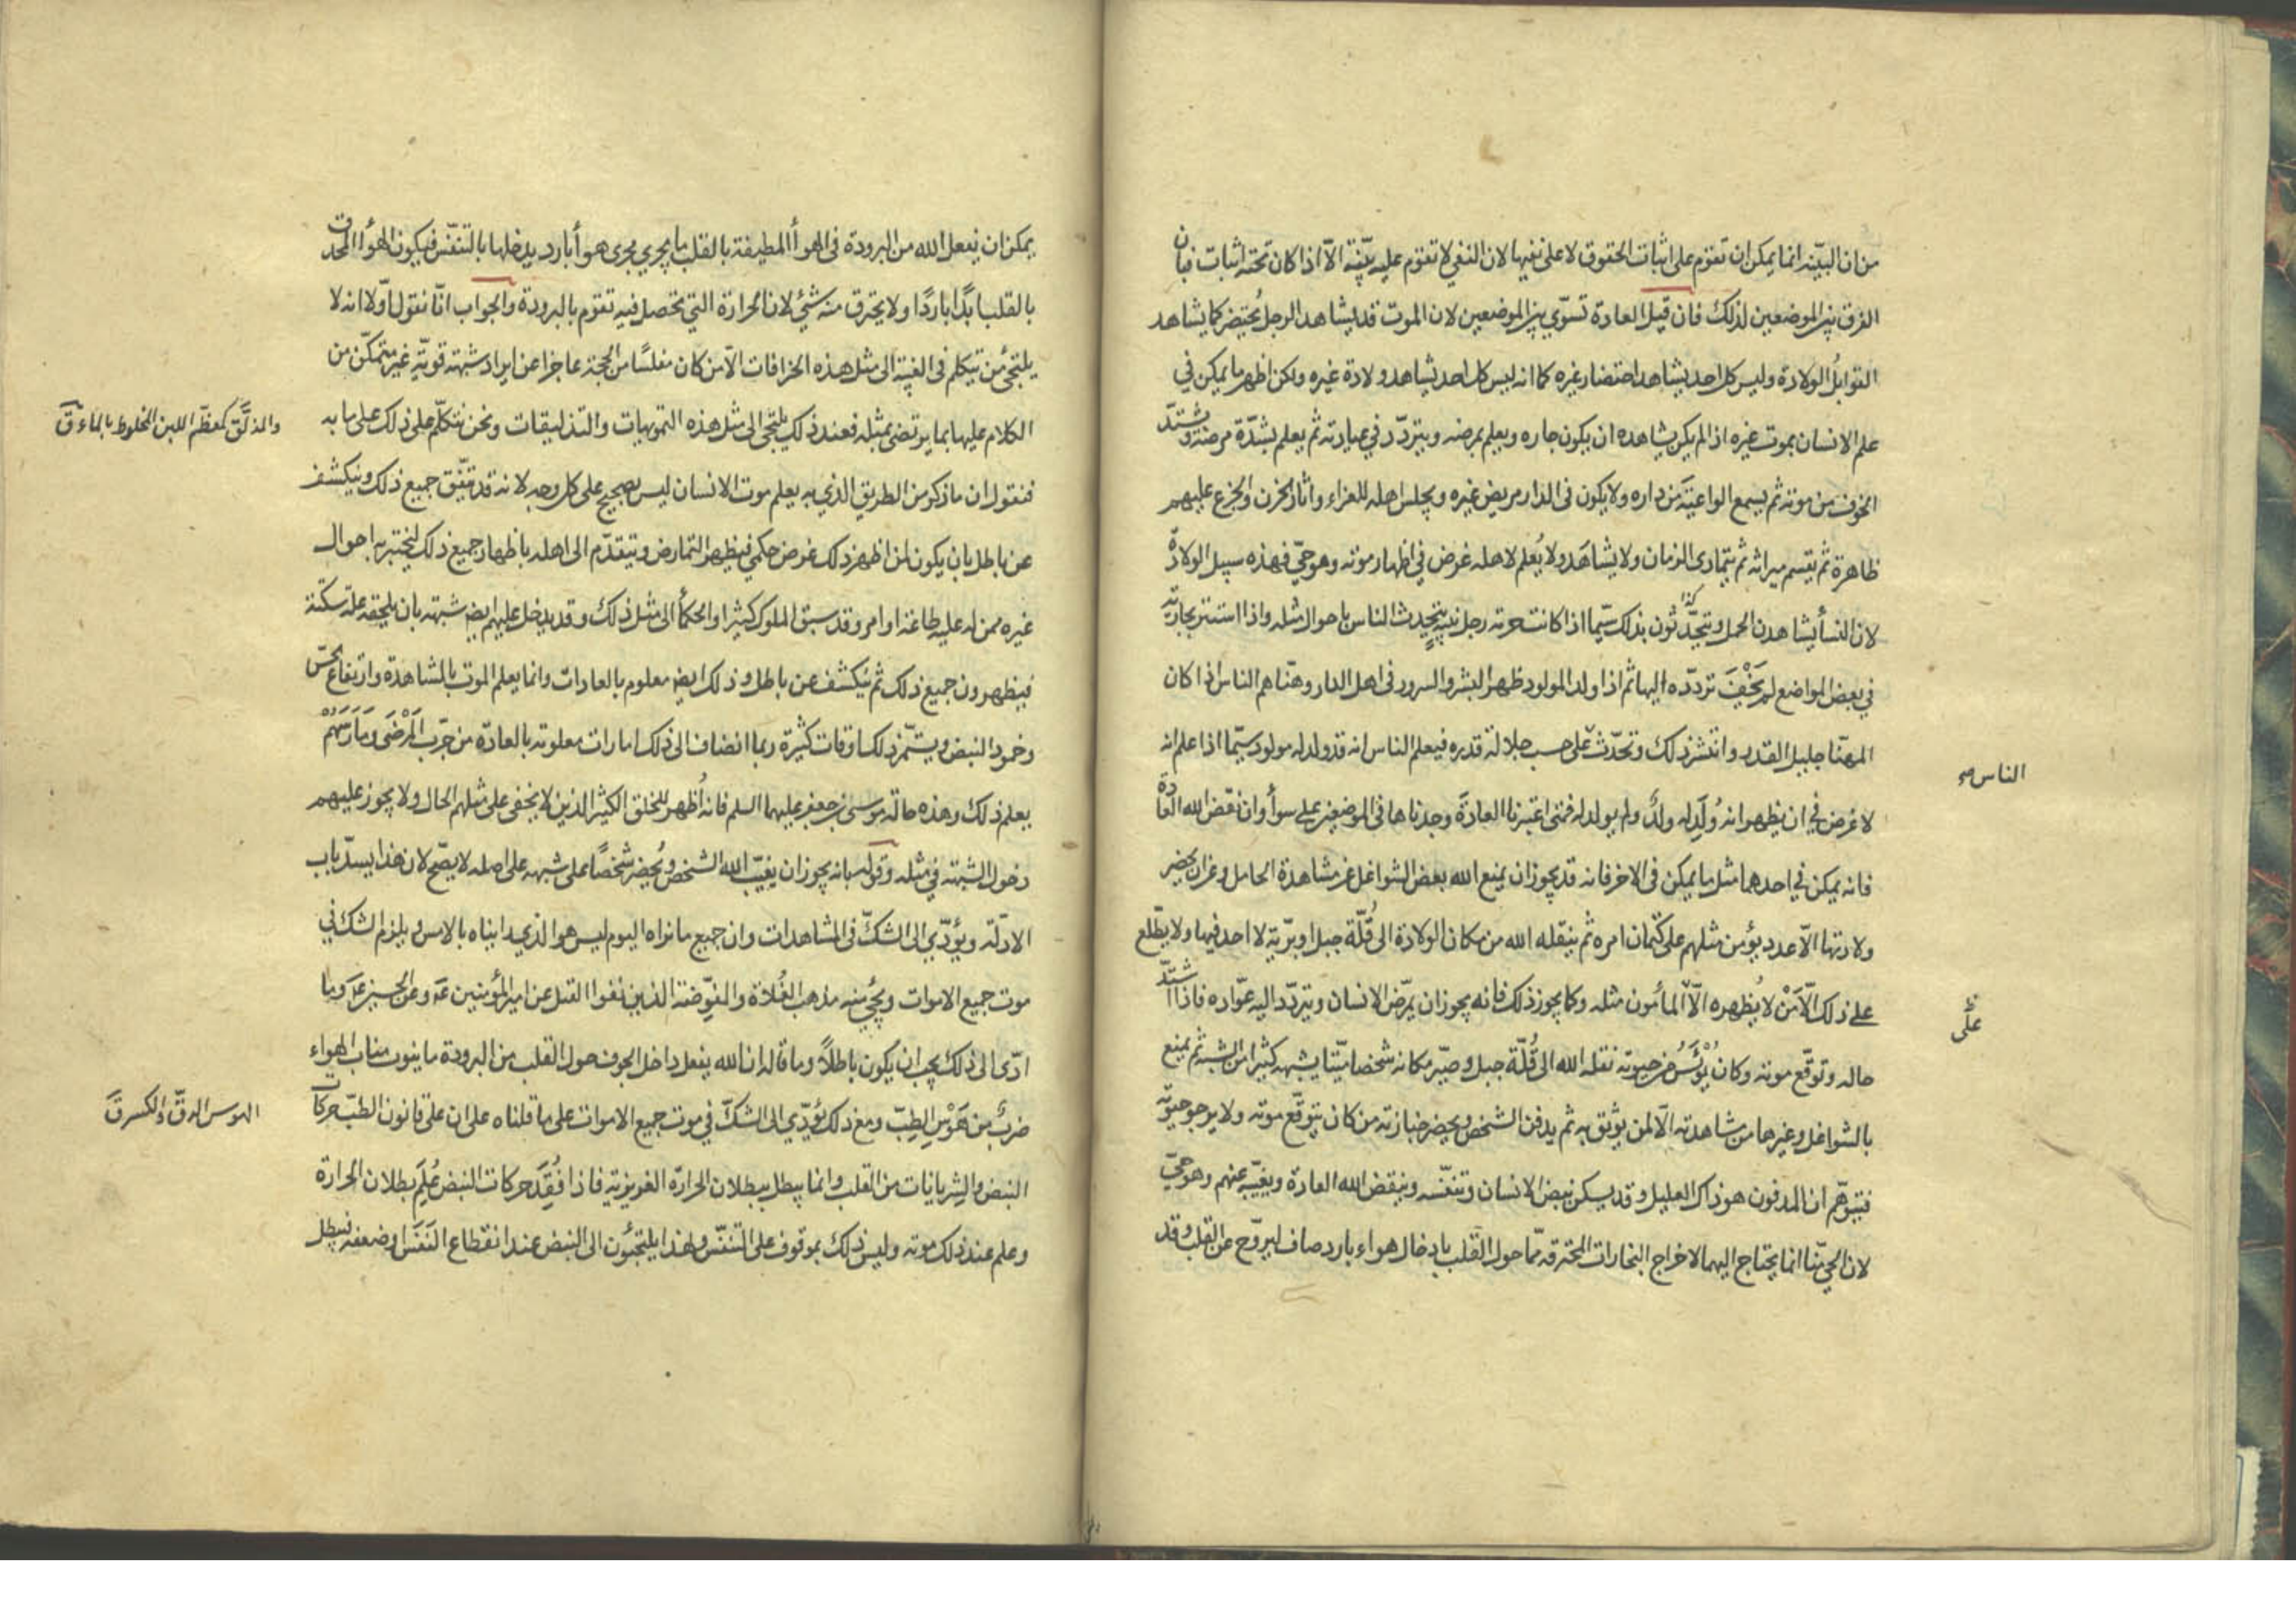 من ان البيّنه انما يمكن ان تقوم على اثبات الحقوق لا على نفيها لان النفي لا تقوم عليه بيّنة الّا اذا كان تحته اثبات فبان
الفرق بين الموضعين لذلك فان قيل العادة تسوّي بين الموضعين لان الموت قد يشاهد الرجل يُحتضر كما يشاهد
القوابلُ الولادة وليس كل احد يشاهد احتضار غيره كما انه ليس كل احد يشاهد ولادة غيره ولكن اظهر ما يمكن في
علم الانسان بموت غيره اذا لم يكن يشاهده ان يكون جاره ويعلم بمرضه ويتردّد في عيادته ثم يعلم بشدّة مرضه ويشتدّ
الخوف من موته ثم يسمع الواعية من داره ولا يكون في الدار مريض غيره ويجلس اهله للعزاء واثار الحزن والجزع عليهم
ظاهرة ثم يقسم ميراثه ثم يتمادى الزمان ولا يشاهَد ولا يُعلم لاهله غرض في اظهار موته وهو حيّ فهذه سبيل الولادة
لان النسأ يشاهدن الحمل ويتحدّثون كذا بذلك سيّما اذا كانت حرمة رجل نبيه يتحدث الناس باحوال مثله واذا استتر بجارية
في بعض المواضع لم يَخْفَ تردّده اليها ثم اذا ولد المولود ظهر البشر والسرور في اهل الدار وهنّاهم الناس اذا كان
المهنّا جليل القدر وانتشر ذلك وتحدّث على حسب جلالة قدره فيعلم الناس انه قد ولد له مولود سيّما اذا علم انه
الناس صح
لا غرض في ان يظهر انه وُلِدَ له ولدٌ ولم يولد له فمتى اعتبرنا العادة وجدناها في الموضعين على سوأ وان نقض الله العادة
فانه يمكن في احدهما مثل ما يمكن في الاخر فانه قد يجوز ان يمنع الله ببعض الشواغل عن مشاهدة الحامل وعن ان يحضر
ولادتها الّا عدد يؤمن مثلهم على كتمان امره ثم ينقله الله من مكان الولادة الى قُلّة جبل او برّية لا احد فيها ولا يطّلع
على ذلك الّا مَنْ لا يُظهره الّا المأمون مثله وكما يجوز ذلك فانه يجوز ان يمرّض الانسان ويتردّد اليه عوّاده فاذا اشتدّ
على
حاله وتوقّع موته وكان يُؤيَسُ من حيوته نقله الله الى قُلّة جبل وصيّر مكانه شخصا ميّتا يشبهه كثيرا من الشبه ثم يمنع
بالشواغل وغيرها من مشاهدته الّا لمن يوثق به ثم يدفن الشخص ويحضر جنازته من كان يتوقّع موته ولا يرجو حيوته
فيتوهّم ان المدفون هو ذاك العليل وقد يسكن نبض الانسان وتنفّسه وينقض الله العادة ويغيّبه عنهم وهو حيّ
لان الحيّ منّا انما يحتاج اليهما لاخراج البخارات المحترقة ممّا حول القلب بادخال هواء بارد صاف ليروّح عن القلب وقد
يمكن ان يفعل الله من البرودة في الهوأ المطيفة بالقلب ما يجري مجرى هوأ بارد يدخلها بالتنفّس فيكون الهوأ المحدق
بالقلب ابدًا باردًا ولا يحترق منه شيئ لان الحرارة التي تحصل فيه تقوم بالبرودة والجواب انّا نقول اوّلا انه لا
يلتجئ من يتكلم في الغيبة الى مثل هذه الخرافات الّا من كان مفلسًا من الحجة عاجزا عن ايراد شبهة قويّة غير متمكّن من
الكلام عليها بما يرتضى بمثله فعند ذلك يلتجئ الى مثل هذه التمويهات والتذليقات ونحن نتكلّم على ذلك على ما به
والمذلَّق كمعظّم اللبن المخلوط بالماء ق
فنقول ان ما ذكر من الطريق الذي به يعلم موت الانسان ليس بصحيح على كل وجه لانه قد يتّفق جميع ذلك وينكشف
عن باطل بان يكون لمن اظهر ذلك غرض حكمي فيظهر التمارض ويتقدّم الى اهله باظهار جميع ذلك ليختبر به احوال
غيره ممن له عليه طاعة او امر وقد سبق الملوك كثيرا والحكمأ الى مثل ذلك وقد يدخل عليهم ايض شبهة بان يلحقه علّة سكتة
فيظهرون جميع ذلك ثم ينكشف عن باطل وذلك ايض معلوم بالعادات وانما يعلم الموت بالمشاهدة وارتفاع الحسّ
وخمود النبض ويستمرّ ذلك اوقات كثيرة ربما انضاف الى ذلك امارات معلومة بالعادة من جرّب المَرْضَى ومَارَسَهُمْ
يعلم ذلك وهذه حالة موسى بن جعفر عليهما السلم فانه اُظهر للخلق الكثير الذين لا يخفى على مثلهم الحال ولا يجوز عليهم
دخول الشبهة في مثله وقوله بانه يجوز ان يغيّب الله الشخص ويُحضر شخصًا على شبهه على اصله لا يصّح لان هذا يسدّ باب
الادلّة ويؤدّي الى الشكّ في المشاهدات وان جميع ما نراه اليوم ليس هو الذي رايناه بالامس ويلزم الشك في
موت جميع الاموات ويجئ منه مذهب الغُلاة والمفوّضة الذين نفوا القتل عن امير المؤمنين عه وعن الحسين عه وما
ادّى الى ذلك يجب ان يكون باطلاً وما قاله ان الله يفعل داخل الجوف حول القلب من البرودة ما ينوب مناب الهواء
ضربٌ من هَوَسِ الطِبّ ومع ذلك يؤدّي الى الشكّ في موت جميع الاموات على ما قلناه على ان على قانون الطبّ حركات
الهوس الدقّ والكسر ق
النبض والشريانات من القلب وانما يبطل ببطلان الحرارة الغريزية فاذا فُقِدَ حركات النبض عُلِمَ بطلان الحرارة
وعلم عند ذلك موته وليس ذلك بموقوف على التنفّس ولهذا يلتجئون الى النبض عند انقطاع النَفَس او ضعفه فيبطل